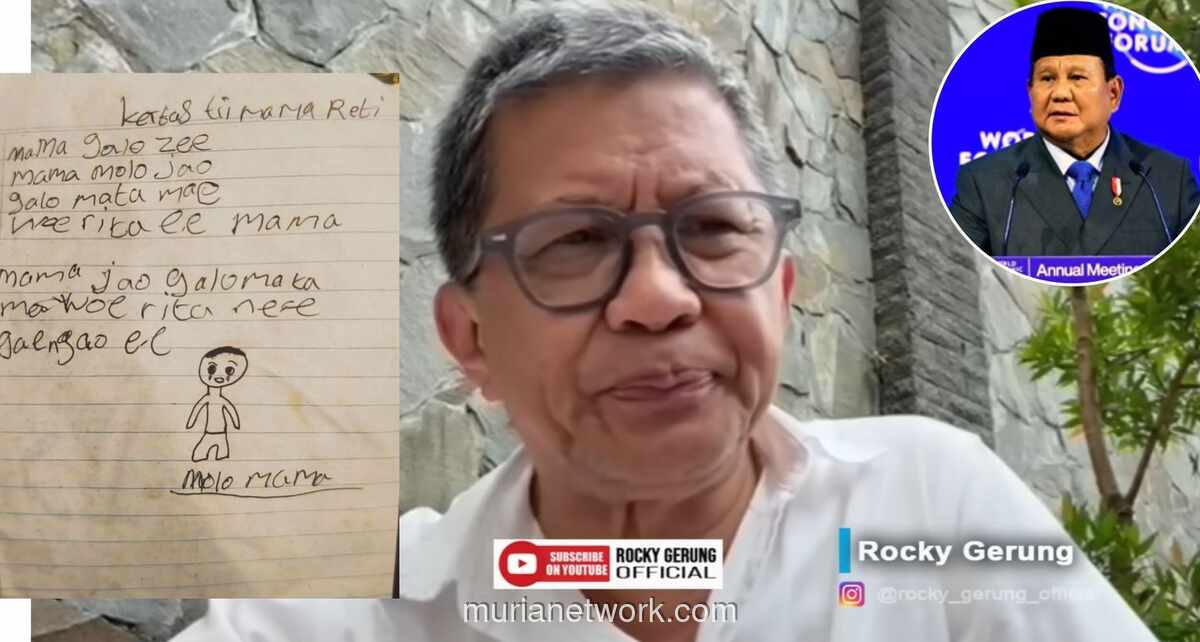 kertas tii mama Reti
mama galo zee
mama molo jao
galo mata mae
woe rita ee mama
mama jao galo mata
mae woe rita nee
gae ngao ee
molo mama
WORLD
ECONOMIC
FORUM
Annual Meeting
SUBSCRIBE
ON YOUTUBE
ROCKY GERUNG
OFFICIAL
Rocky Gerung
@rocky_gerung_official
murianetwork.com